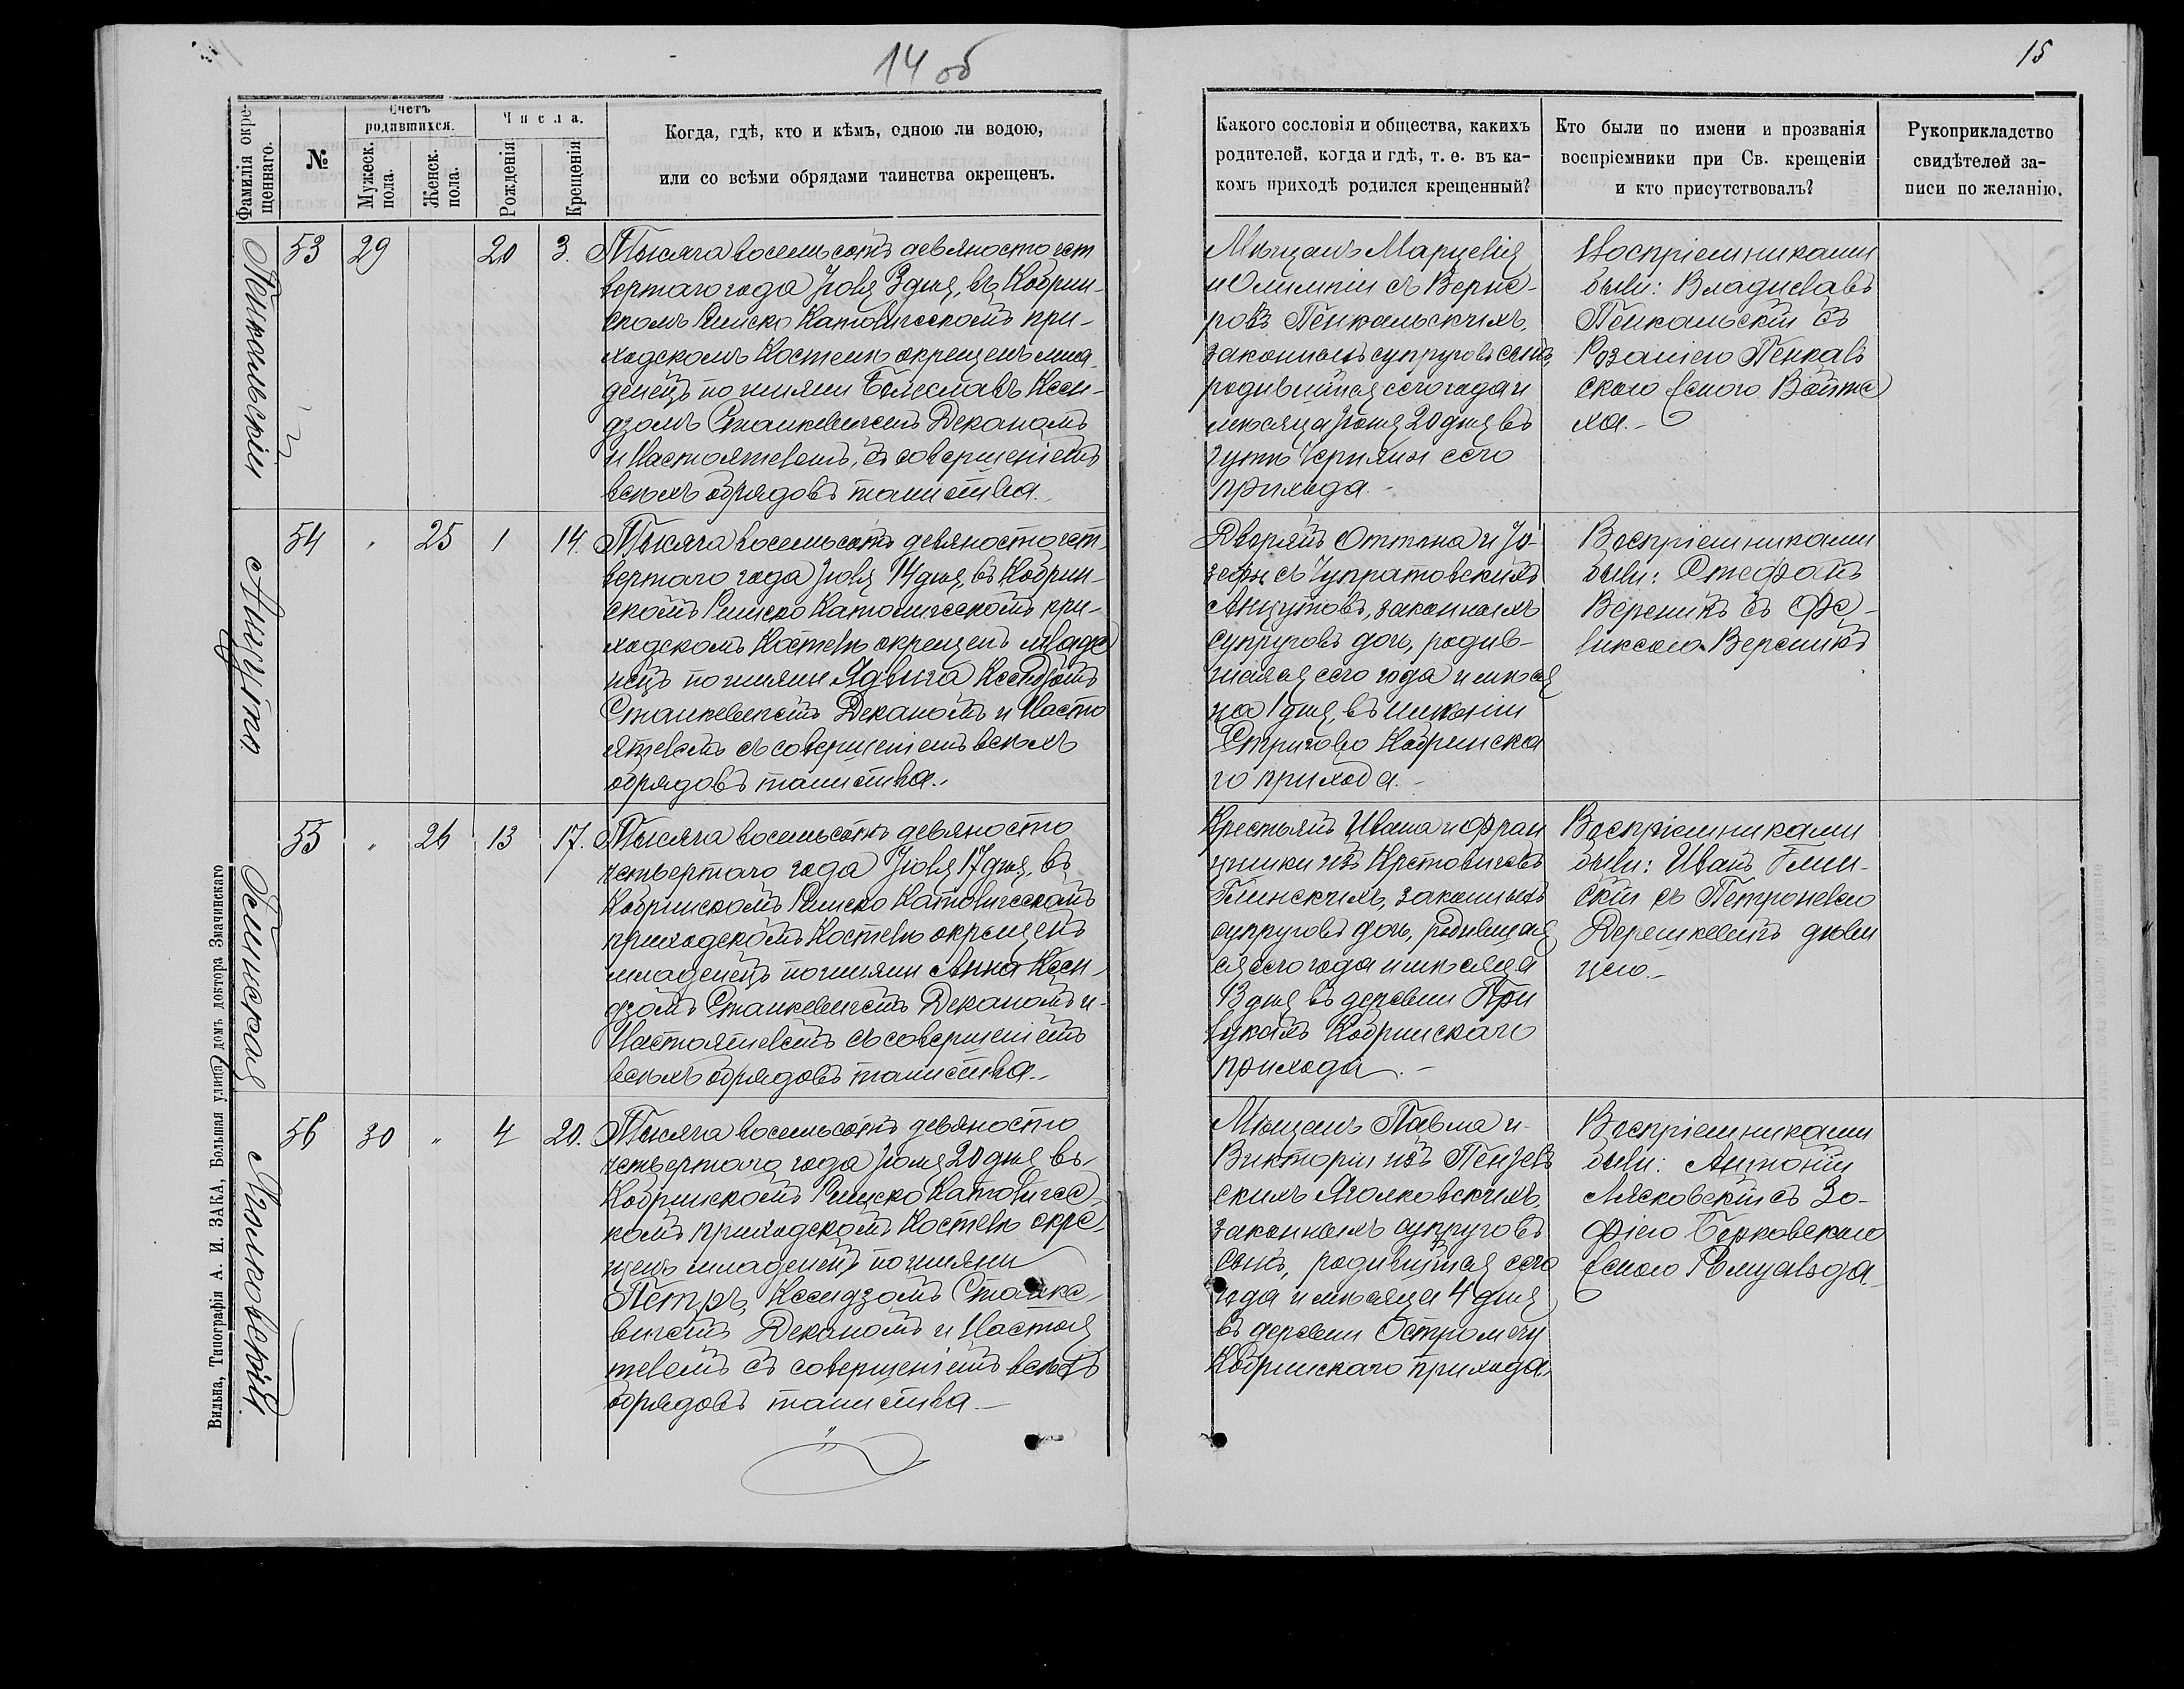 14 об
15
Фамилія окре-
щеннаго.
№
Счетъ
родившихся.
Мужеск.
пола.
Женск.
пола.
Числа.
Рожденія
Крещенія
Когда, гдѣ, кто и кѣмъ, одною ли водою,
или со всѣми обрядами таинства окрещенъ.
Какого сословія и общества, какихъ
родителей, когда и гдѣ, т. е. въ ка-
комъ приходѣ родился крещенный?
Кто были по имени и прозванія
воспріемники при Св. крещеніи
и кто присутствовалъ?
Рукоприкладство
свидѣтелей за-
писи по желанію.
Пенкальскій
53 29 20 3.
Тысяча восемьсотъ девяносто чет
вертаго года Іюля 3 дня, въ Кобрин-
скомъ Римско Католическомъ при-
ходскомъ Костелѣ окрещенъ мла
денецъ по имени Болеславъ Ксен-
дзомъ Станкевичемъ Деканомъ
и Настоятелемъ, съ совершеніемъ
всѣхъ обрядовъ таинства.
Мѣщанъ Марцелія
и Олимпіи съ
Пенкальскихъ,
законныхъ супруговъ сынъ,
родившійся сего года и
мѣсяца Іюня 20 дня въ
сего
прихода.-
Воспріемниками
были: Владиславъ
Пенкальскій съ
Розаліею Пенкаль
скою женою Войте
ха.-
Анцута
54 " 25 1 14.
Тысяча восемьсотъ девяносто чет
вертаго года Іюля 14 дня, въ Кобрин-
скомъ Римско Католическомъ при-
ходскомъ Костелѣ окрещенъ младе
нецъ по имени Ядвига Ксендзомъ
Станкевичемъ Деканомъ и Насто
ятелемъ съ совершеніемъ всѣхъ
обрядовъ таинства.
Дворянъ Оттона и Іо-
зефы съ Чупратовскихъ
Анцутовъ, законныхъ
супруговъ дочь, родив-
шаяся сего года и мѣся
ца 1 дня, въ имѣніи
Стригово Кобринска
го прихода.-
Воспріемниками
были: Стефанъ
съ Фе-
ликсою
Глинская
55 " 26 13 17.
Тысяча восемьсотъ девяносто
четвертаго года Іюля 17 дня, въ
Кобринскомъ Римско Католическомъ
приходскомъ Костелѣ окрещенъ
младенецъ по имени Анна Ксен-
дзомъ Станкевичемъ Деканомъ и
Настоятелемъ съ совершеніемъ
всѣхъ обрядовъ таинства.-
Крестьянъ Ивана и Фран
цишки изъ
Глинскихъ, законныхъ
супруговъ дочь, родившая
ся сего года и мѣсяца
13 дня въ деревни При
лукахъ Кобринскаго
прихода.-
Воспріемниками
были: Иванъ Глин-
скій съ Петронелею
дѣви
цею.-
Яголковскій
56 30 " 4 20.
Тысяча восемьсотъ девяносто
четвертаго года Іюля 20 дня въ
Кобринскомъ Римско Католичес
комъ приходскомъ Костелѣ окре
щенъ младенецъ по имени
Петръ, Ксендзомъ Станке
вичемъ Деканомъ и Настоя
телемъ съ совершеніемъ всѣхъ
обрядовъ таинства.-
Мѣщанъ Павла и
Викторіи изъ
Яголковскихъ,
законныхъ супруговъ
сынъ, родившійся сего
года и мѣсяца 4 дня
въ деревни Остромечу
Кобринскаго прихода.
Воспріемниками
были: Антоній
Лясковскій съ Зо-
фіею
женою Ромуальда.
Вильна, Типографія А. И. ЗАКА, Большая улица, домъ доктора Змачинскаго